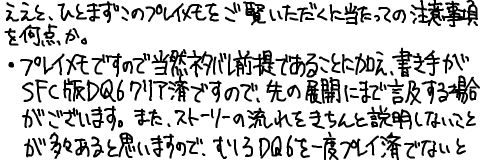 ええと、ひとまずこのプレイメモをご覧いただくに当たっての注意事項
を何点か。
・プレイメモですので当然ネタバレ前提であることに加え、書き手が
SFC版DQ6クリア済ですので、先の展開にまで言及する場合
がございます。また、ストーリーの流れをきちんと説明しないこと
が多々あると思いますので、むしろDQ6を一度プレイ済でないと